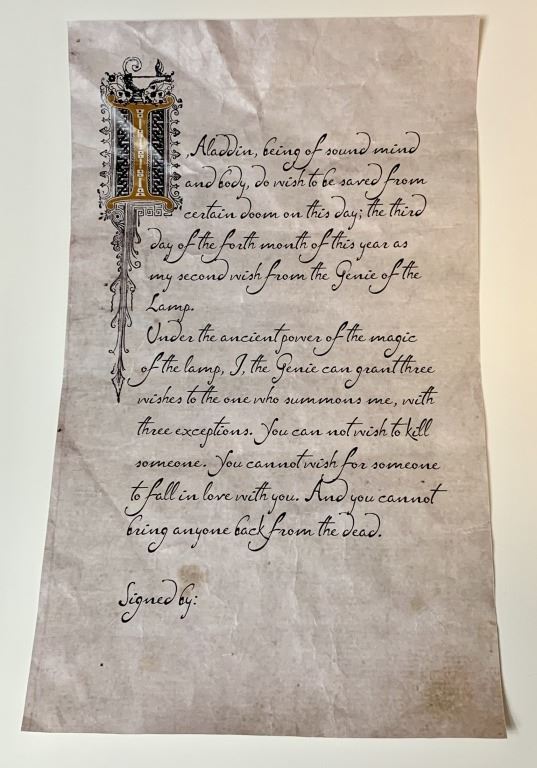 I, Aladdin, being of sound mind
and body, do wish to be saved from
certain doom on this day; the third
day of the forth month of this year as
my second wish from the Genie of the
Lamp.
Under the ancient power of the magic
of the lamp, I, the Genie can grant three
wishes to the one who summons me, with
three exceptions. You can not wish to kill
someone. You cannot wish for someone
to fall in love with you. And you cannot
bring anyone back from the dead.
Signed by: